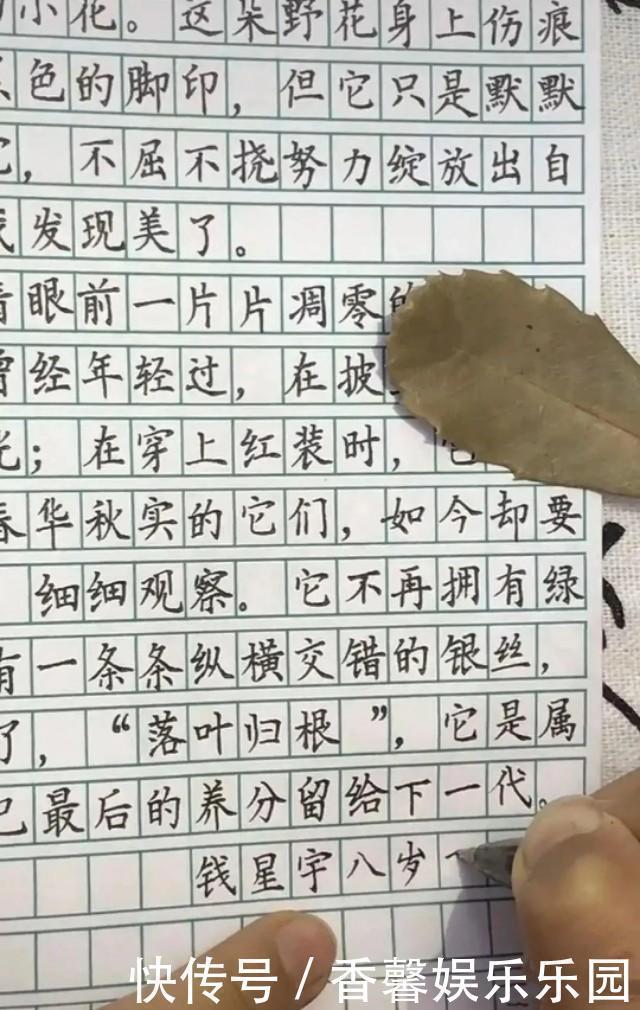 小花。这朵野花身上伤痕
色的脚印，但它只是默默
，不屈不挠努力绽放出自
发现美了。
眼前一片片凋零的
曾经年轻过，在披
；在穿上红装时，它
春华秋实的它们，如今却要
细细观察。它不再拥有绿
有一条条纵横交错的银丝，
了，“落叶归根”，它是属
最后的养分留给下一代。
钱星宇八岁
快传号/香馨娱乐乐园